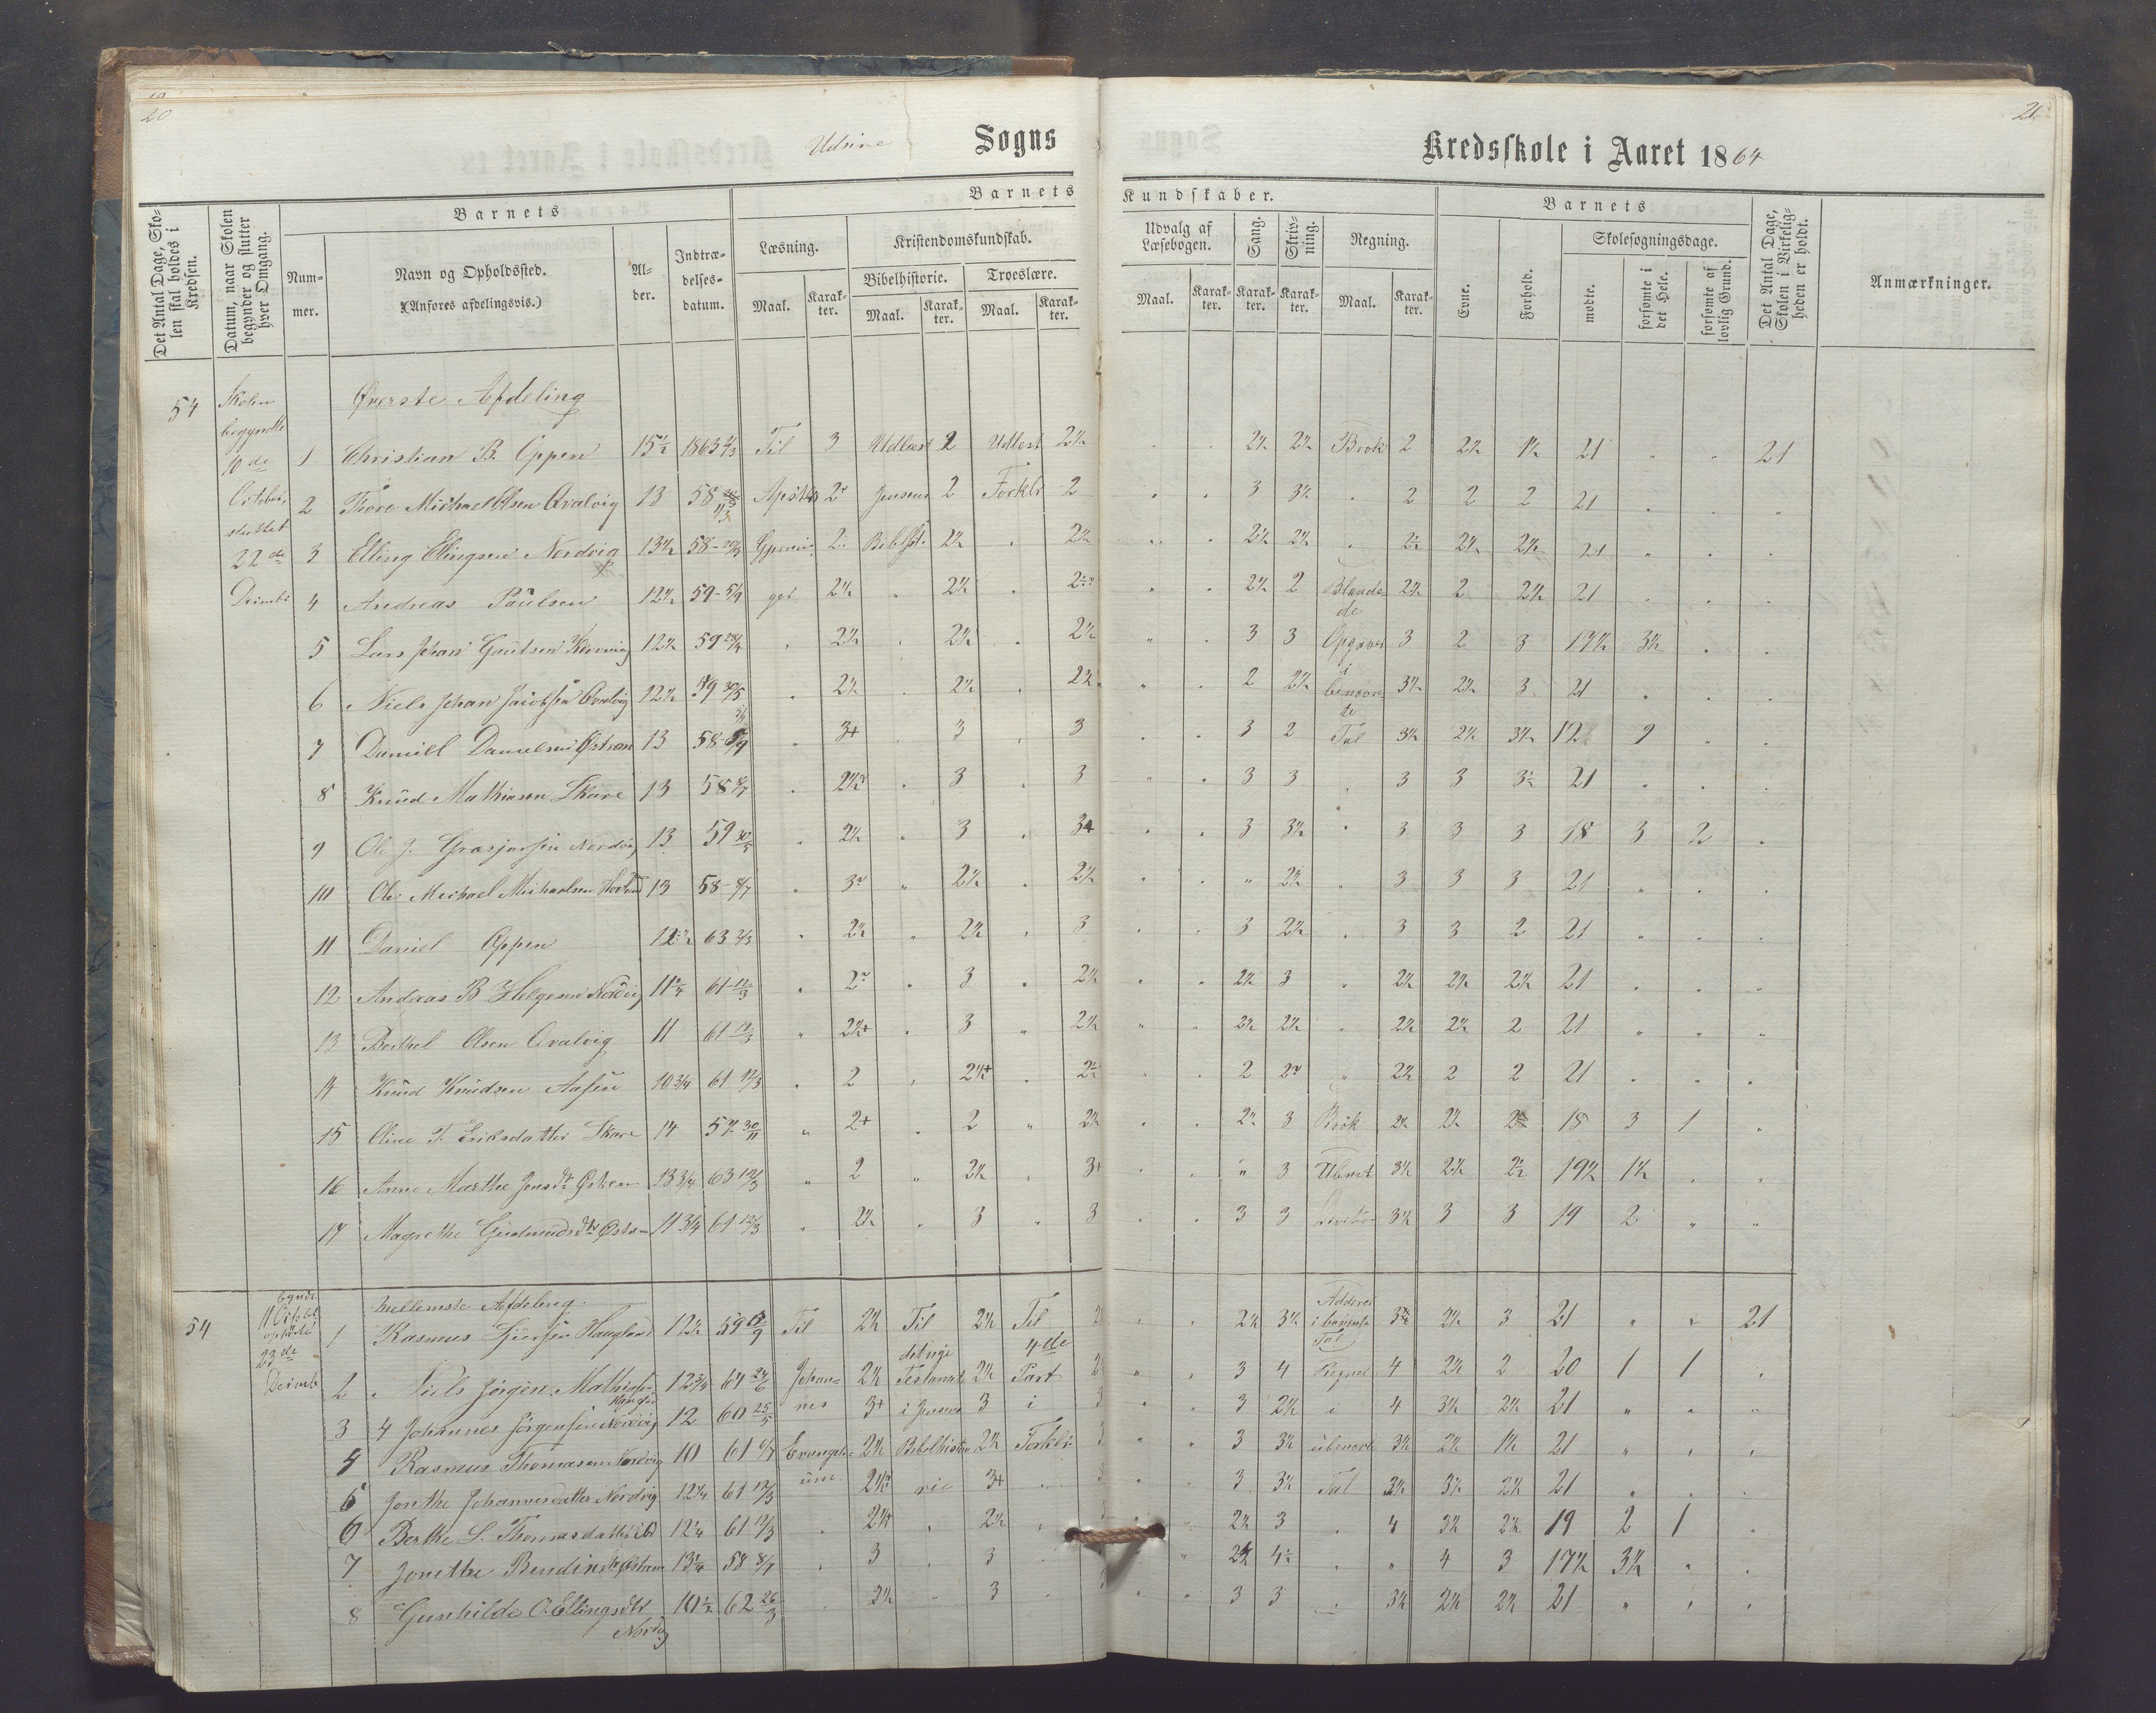 20
21
Udsire Sogns Kredsskole i Aaret 1864
Det Antal Dage, Skolen skal holdes i Kredsen.
Datum, naar Skolen begynder og slutter hver Omgang.
Barnets
Nummer.
Navn og Opholdssted.
(Anføres afdelingsvis.)
Alder.
Indtrædelsesdatum.
Barnets Kundskaber.
Læsning.
Maal. Karakter.
Kristendomskundskab.
Bibelhistorie.
Maal. Karakter.
Troeslære.
Maal. Karakter.
Udvalg af Læsebogen.
Maal. Karakter.
Sang.
Karakter.
Skrivning.
Karakter.
Regning.
Maal. Karakter.
Barnets
Evne.
Forhold.
Skolesøgningsdage.
mødte.
forsømte i det Hele.
forsømte af lovlig Grund.
Det Antal Dage, Skolen i Virkeligheden er holdt.
Anmærkninger.
54 Skolen begyndte 10de October, sluttet 22de
Øverste Afdeling
1 Christian B. Oppen 15½ 1863 Til 3 Udlæst 2 Udlæst 2½ " " 2½ 2½ Brøk 2 2½ 1½ 21 " " 21
2 Thore Michael Olsen Qvalvig 13 58 2 Jensens 2 Forkl 2 " " 3 3½ " 2 2 2 21 " " "
3 Elling Ellingsen Nordvig 13½ 58 Bibelhist. 2½ " 2½ " " 2½ 2½ " 2½ 2½ 2½ 21 " " "
4 Andreas Paulsen 12½ 59 2½ " 2½ " " " 2½ 2 Blandede 2½ 2 2½ 21 " " "
5 Lars Johan 12½ 59 " 2½ " 2½ " 2½ " " 3 3 Opgaver 3 2 3 17½ 3½ " "
6 Niels Johan Jacobsen Qvalvig 12½ 59 30/5 " 2½ " 2½ " 2½ " " 2 2½ i benævnte 3½ 2½ 3 21 " " "
7 Daniel Danielsen 13 58 " 3+ " 3 " 3 " " 3 2 Tal 3½ 2½ 3½ 12 9 " "
8 Knud Mathiasen Skare 13 58 8/7 " " 3 " 3 " " 3 3 " 3 3 3½ 21 " " "
9 Ole J. Nordvig 13 59 30/5 " 2½ " 3 " " " 3 3½ " 3 3 3 18 3 2 "
10 Ole Michael Michaelsen 13 58 8/7 " 3 " 2½ " 2½ " " " 2½ " 3 3 3 21 " " "
11 Daniel Oppen 63 2/3 " 2½ " 2½ " 3 " " 3 2½ " 3 3 2 21 " " "
12 Andreas B Helgesen Nordvig 61 12/3 " 2 " 3 " 2½ " " 2½ 3 " 2½ 2½ 2½ 21 " " "
13 Berthel Olsen Qvalvig 11 61 12/3 " 2½+ " 3 " 2½ " " 2½ 2½ " 2½ 2½ 2 21 " " "
14 Knud Knudsen Aasen 10 3/4 61 12/3 " 2 " 2½+ " 2½ " " 2 2 " 2½ 2 2 21 " " "
15 Oline T. Eriksdatter Skare 14 57 30/11 " 2+ " 2 " 2½ " " 2½ 3 Brøk 2½ 2½ 18 3 1 "
16 Anne Marthe Jensdtr 13 3/4 63 12/3 " 2 " 2½ " 3+ " " " 3 3½ 2½ 2½ 19½ 1½ " "
17 Magrethe Gudmundsdtr 11 3/4 61 12/3 " 2½ " 3 " 3 " " 3 3 3½ 3 3 19 2 " "
54 11 October 23de
Mellemste Afdeling.
1 Rasmus Haugland 12½ 59 Til 2½ Til 2½ Til " " 2½ 3½ i benævnte Tal 3½ 2½ 3 21 " " 21
2 Niels Jørgen 12 3/4 64 24/6 Johannes 2½ det nye Testament 2½ 4de Part " " 3 4 4 2½ 2 20 1 1 "
3 4 Johannes Jørgensen Nordvig 12 60 25/5 3+ i Jensens 3 i 3 " " 3 2½ i 4 3½ 2½ 21 " " "
4 Rasmus Thomasen Nordvig 10 61 Evangelium 2½ Bibelhistorie 2½ Forkl. 3 " " 3 3½ ubenævnte 3½ 2½ 1½ 21 " " "
5 Jonthe Johannesdatter Nordvig 12¼ 61 12/3 3+ " 3 " " 3 3½ Tal 3½ 3½ 2½ 21 " " "
6 Berthe S. Thomasdatter ibd 12¼ 61 12/3 " " 2½ " 3 " " 2½ 3 " 4 3½ 2½ 19 2 1 "
7 Jonethe 13¼ 58 8/7 " 3 " 3 " " 4½ " " 4 3 17½ 3½ " "
8 Gunhilde O. Ellingsdtr Nordvig 10½ 62 26/3 " 2½ " 3 " " " 3 3 " 3½ 2½ 2½ 21 " " "